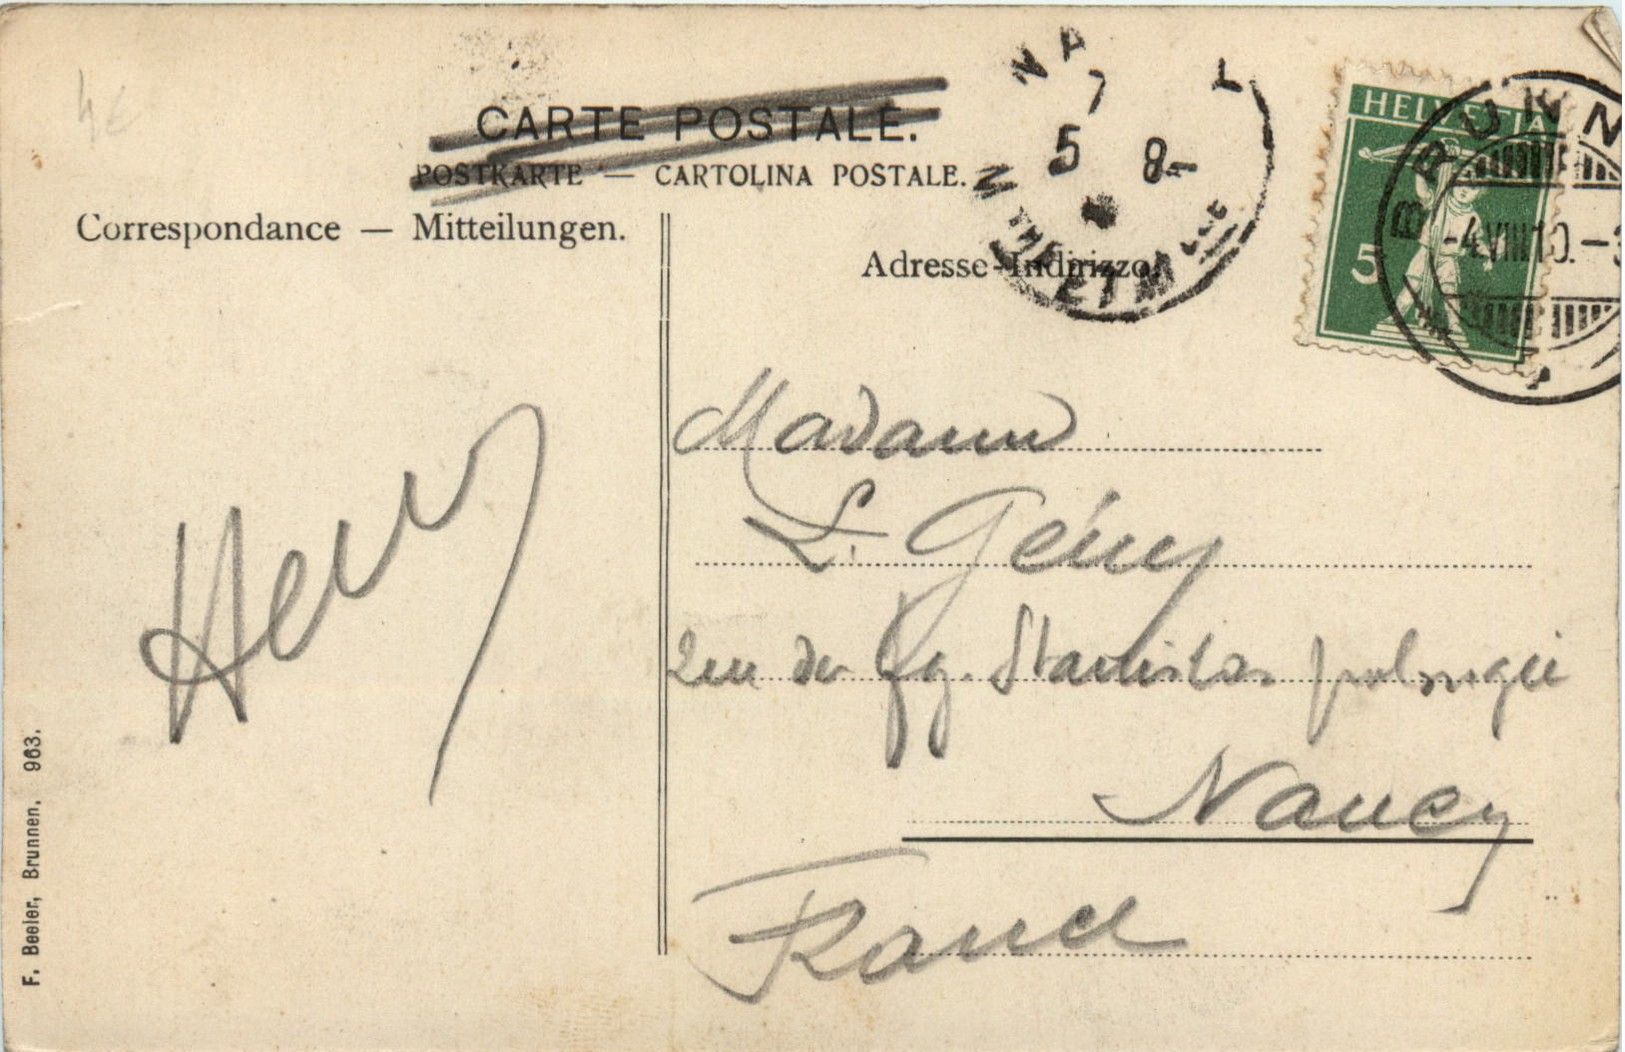 4€
CARTE POSTALE.
POSTKARTE — CARTOLINA POSTALE.
Correspondance — Mitteilungen.
Adresse-Indirizzo.
7
5 8-
HELVETIA
5
BRUNN
-4.VIII.10.-3
Henry
Madame
L. Gény
fg. Stanislas
Nancy
France
F. Beeler, Brunnen. 963.